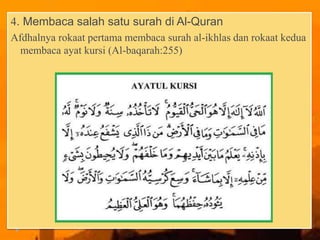 4. Membaca salah satu surah di Al-Quran
Afdhalnya rokaat pertama membaca surah al-ikhlas dan rokaat kedua
membaca ayat kursi (Al-baqarah:255)
AYATUL KURSI
اَللّٰهُ لَآ اِلٰهَ اِلَّا هُوَ الْحَيُّ الْقَيُّوْمُ ۚ لَا تَأْخُذُهٗ سِنَةٌ وَّلَا نَوْمٌ ۗ لَهٗ
مَا فِى السَّمٰوٰتِ وَمَا فِى الْاَرْضِ ۗ مَنْ ذَا الَّذِيْ يَشْفَعُ عِنْدَهٗٓ اِلَّا
بِاِذْنِهٖ ۗ يَعْلَمُ مَا بَيْنَ اَيْدِيْهِمْ وَمَا خَلْفَهُمْ ۚ وَلَا يُحِيْطُوْنَ بِشَيْءٍ
مِّنْ عِلْمِهٖٓ اِلَّا بِمَا شَآءَ ۚ وَسِعَ كُرْسِيُّهُ السَّمٰوٰتِ وَالْاَرْضَ ۚ وَلَا
يَـُٔوْدُهٗ حِفْظُهُمَا ۚ وَهُوَ الْعَلِيُّ الْعَظِيْمُ